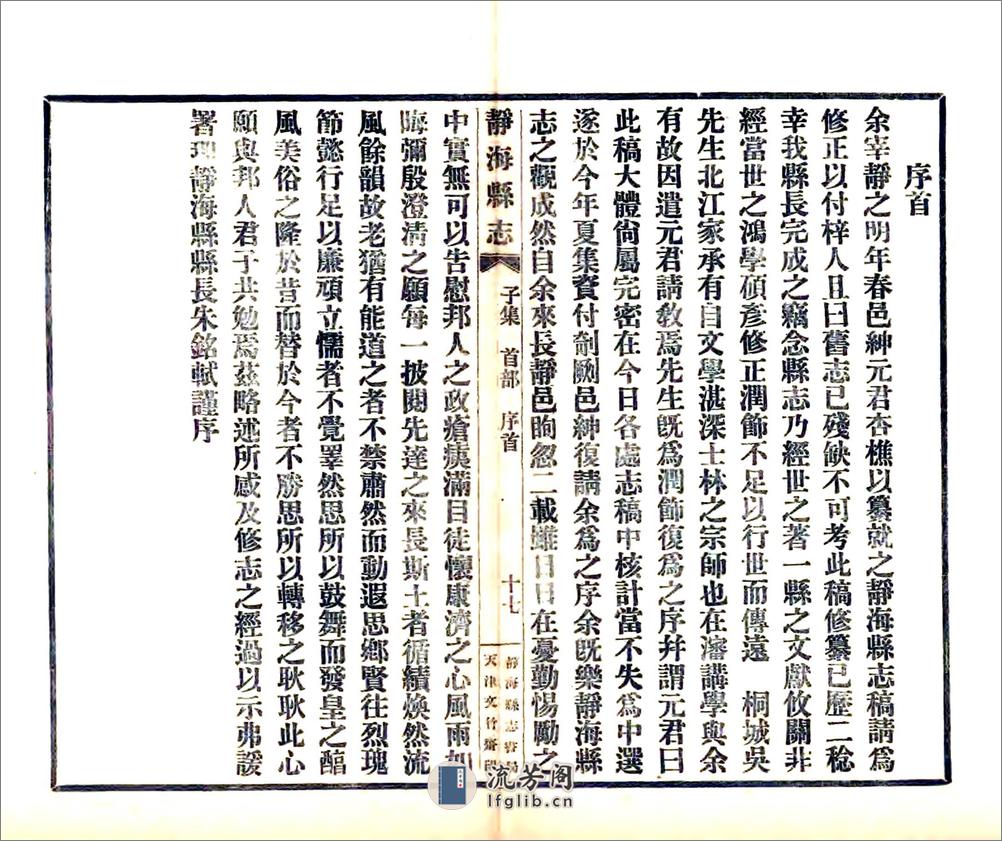 序首
余宰靜之明年春邑紳元君杏樵以纂就之靜海縣志稿請爲
修正以付梓人且曰舊志已殘缺不可考此稿修纂已歷二稔
幸我縣長完成之竊念縣志乃經世之著一縣之文獻攸關非
經當世之鴻學碩彥修正潤飾不足以行世而傳遠　桐城吳
先生北江家承有自文學湛深士林之宗師也在瀋講學與余
有故因遣元君請教焉先生旣爲潤飾復爲之序幷謂元君曰
此稿大體尙屬完密在今日各處志稿中核計當不失爲中選
遂於今年夏集資付剞劂邑紳復請余爲之序余旣樂靜海縣
志之觀成然自余來長靜邑眴忽二載雖日日在憂勤惕勵之
靜海縣志
子集　首部　序首
十七
靜海縣志書局
天津文竹齋印
中實無可以告慰邦人之政瘡痍滿目徒懷康濟之心風雨如
晦彌殷澄清之願每一披閱先達之來長斯土者循績煥然流
風餘韻故老猶有能道之者不禁肅然而動遐思鄉賢往烈瑰
節懿行足以廉頑立懦者不覺睪然思所以鼓舞而發皇之醞
風美俗之隆於昔而替於今者不勝思所以轉移之耿耿此心
願與邦人君子共勉焉茲略述所感及修志之經過以示弗諼
署理靜海縣縣長朱銘軾謹序
流芳阁
lfglib.cn